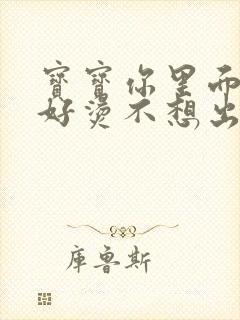 寶寶你里面
好燙不想出
庫魯斯